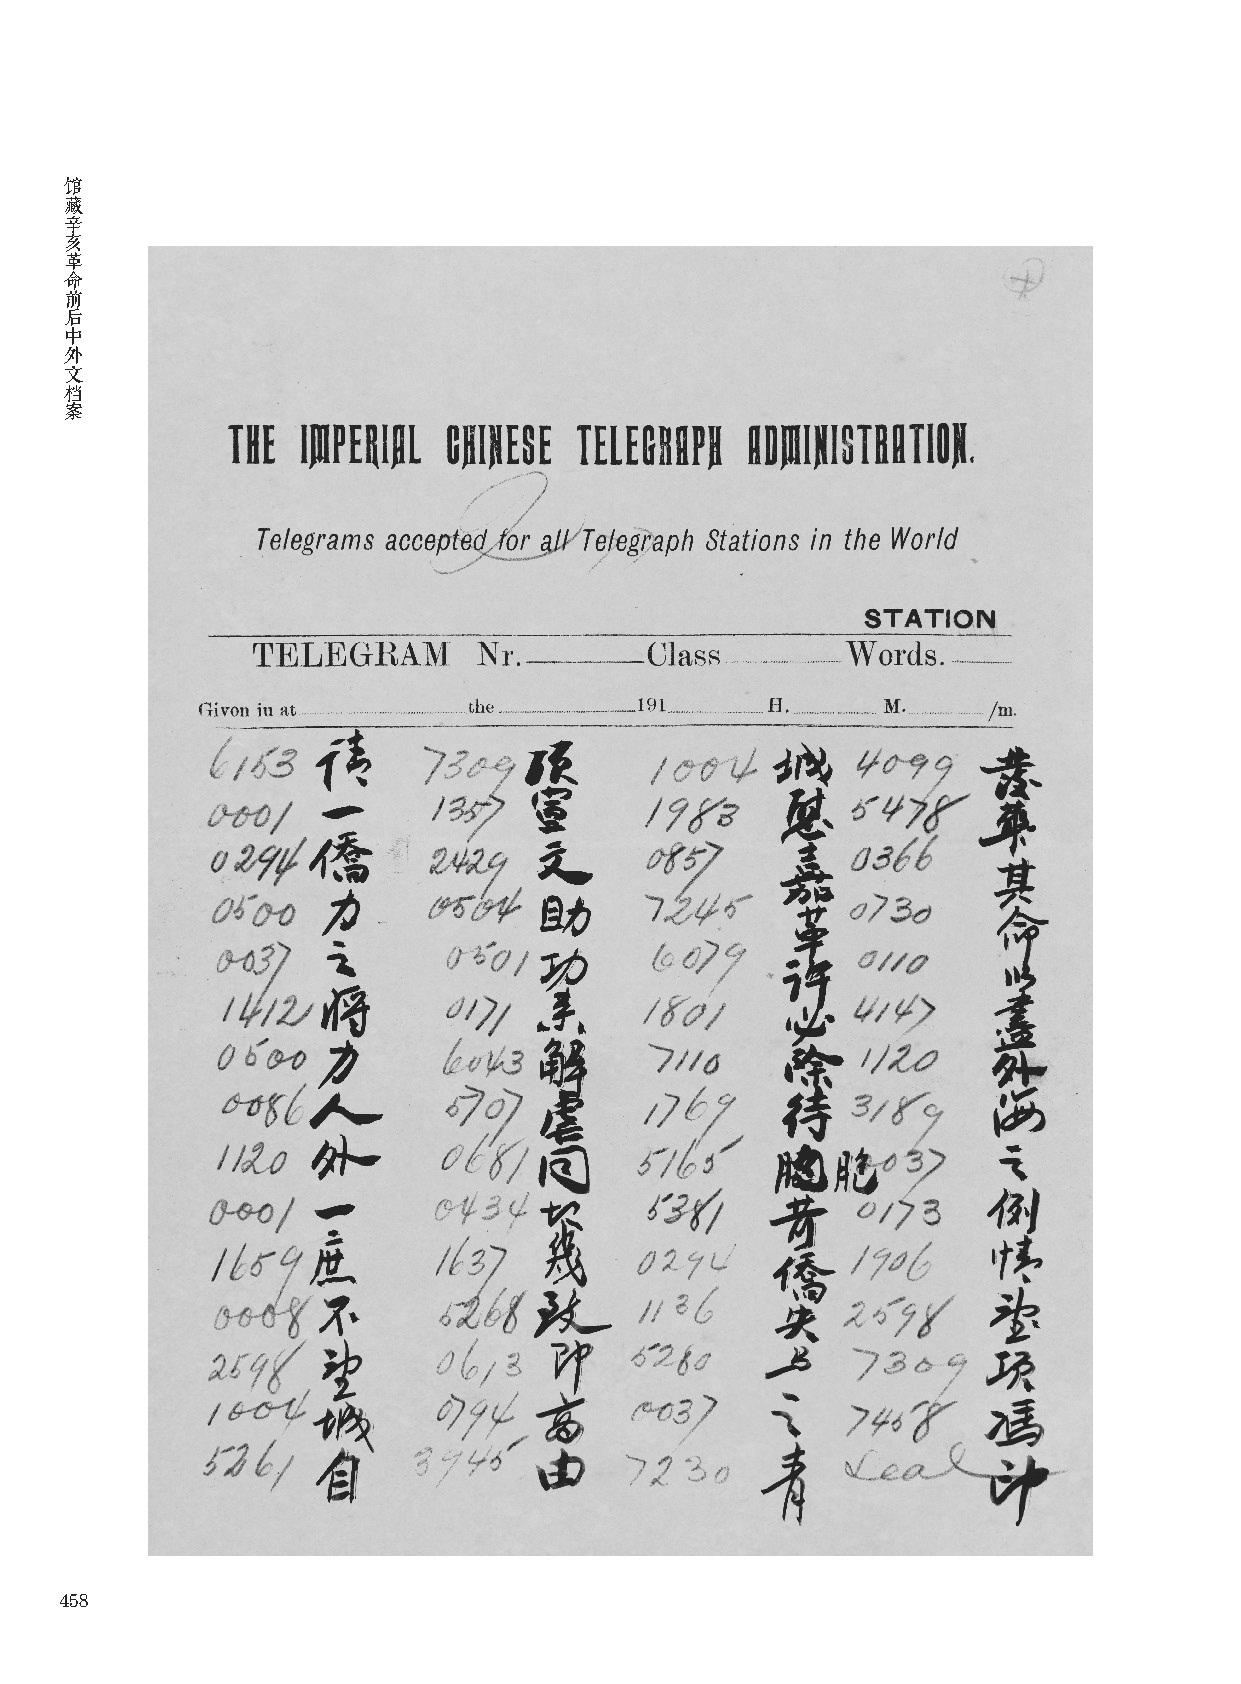 馆藏辛亥革命前后中外文档案
THE IMPERIAL CHINESE TELEGRAPH ADMINISTRATION.
Telegrams accepted for all Telegraph Stations in the World
STATION
TELEGRAM Nr. Class Words.
Given in at the 191 H. M. /m.
6153 請 7309 項 1004 城 4099 發
0001 一 1357 宣 1983 慰 5478 華
0294 僑 2429 文 0857 嘉 0366 其
0500 力 0504 助 7245 革 0730 命
0037 之 0501 功 6079 許 0110 以
1412 將 0171 来 1801 必 4147 盡
0500 力 6043 解 7110 除 1120 外
0086 人 5707 虐 1769 待 3189 海
1120 外 0681 同 5165 胞 0037 之
0001 一 0434 切 5381 苛 0173 例
1659 庶 1637 幾 0294 僑 1906 情
0008 不 5268 致 1136 失 2598 望
2598 望 0613 即 5280 与 7309 項
1004 城 0794 商 0037 之 7458 馮
5261 自 3945 由 7230 青 Seal 印
458